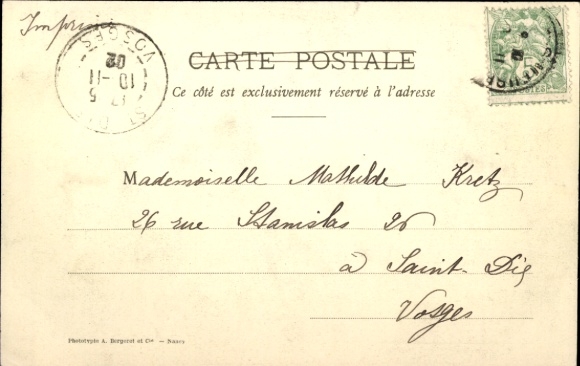 Imprimé
CARTE POSTALE
Ce côté est exclusivement réservé à l'adresse
VOSGES
02
10-11
5
ST
Mademoiselle Mathilde Kretz
26 rue Stanislas 26
à Saint-Dié
Vosges
Phototypie A. Bergeret et Cie — Nancy